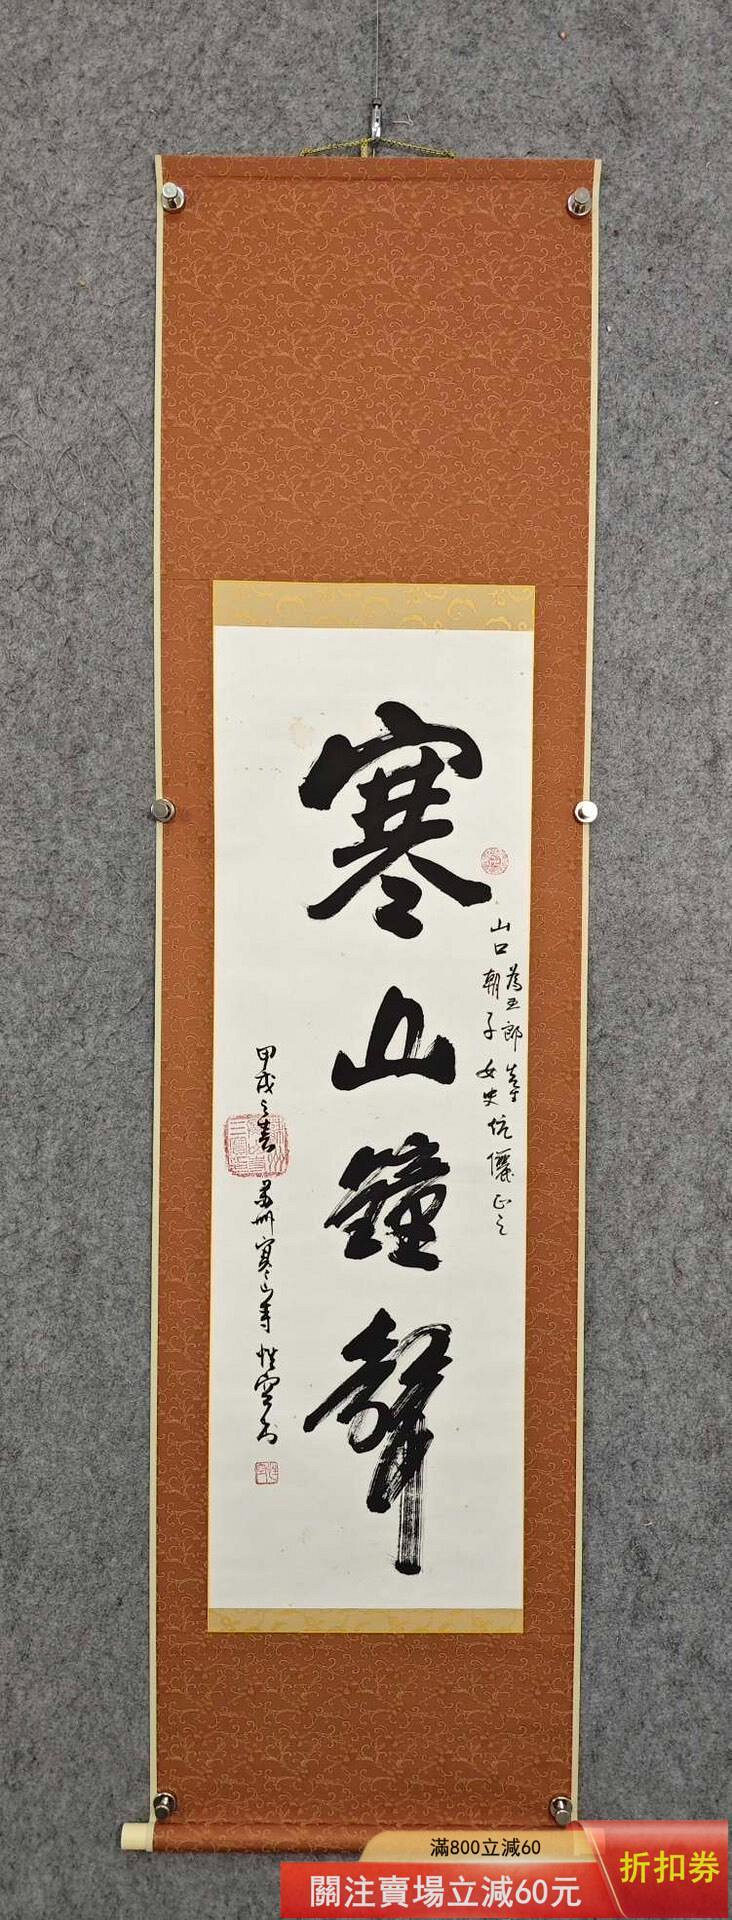 寒山鐘聲
山口
為五郎先生
朝子女史伉儷正之
甲戌之春 蘇州寒山寺 性空書
滿800立減60
關注賣場立減60元
折扣券